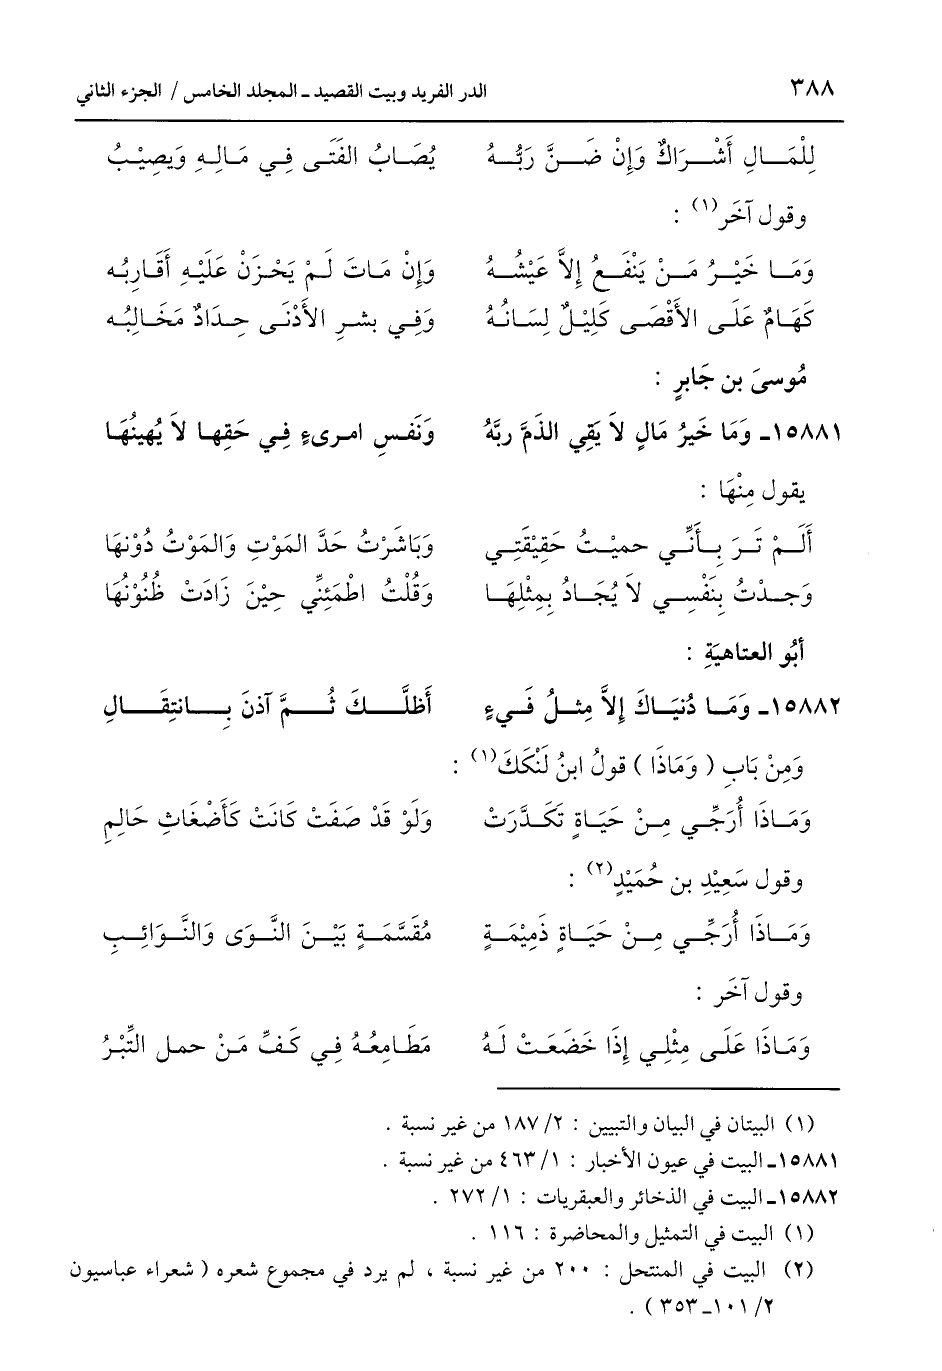 ٣٨٨ الدر الفريد وبيت القصيد ـ المجلد الخامس / الجزء الثاني
لِلْمَالِ أَشْرَاكٌ وَإِنْ ضَنَّ رَبُّهُ يُصَابُ الفَتَى فِي مَالِهِ وَيصِيْبُ
وقول آخَر(١) :
وَمَا خَيْرُ مَنْ يَنْفَعُ إِلاَّ عَيْشُهُ وَإِنْ مَاتَ لَمْ يَحْزَنْ عَلَيْهِ أَقَارِبُه
كَهَامٌ عَلَى الأَقْصَى كَلِيْلٌ لِسَانُهُ وَفِي بشرِ الأَدْنَى حِدَادٌ مَخَالِبُه
مُوسىَ بن جَابرٍ :
١٥٨٨١ـ وَمَا خَيرُ مَالٍ لاَ يَقِي الذَمَّ ربَّهُ وَنَفسِ امرىءٍ فِي حَقِها لاَ يُهينُهَا
يقول مِنْهَا :
أَلَمْ تَرَ بِأَنِّي حميْتُ حَقِيْقَتِي وَبَاشَرْتُ حَدَّ المَوْتِ وَالمَوْتُ دُوْنهَا
وَجدْتُ بِنَفْسِي لاَ يُجَادُ بِمِثْلِهَا وَقُلْتُ اطْمَئِنِّي حِيْنَ زَادَتْ ظُنُوْنُهَا
أبُو العتاهيَةِ :
١٥٨٨٢ـ وَمَا دُنيَاكَ إِلاَّ مِثلُ فَيءٍ أَظلَّكَ ثُمَّ آذنَ بِانتِقَالِ
وَمِنْ بَابِ ( وَمَاذَا ) قولُ ابنُ لَنْكَكَ(١) :
وَمَاذَا أُرَجِّي مِنْ حَيَاةٍ تكَدَّرَتْ وَلَوْ قَدْ صَفَتْ كَانَتْ كَأَضْغَاثِ حَالِمِ
وقول سَعِيْدِ بن حُمَيْدٍ(٢) :
وَمَاذَا أُرَجِّي مِنْ حَيَاةٍ ذَمِيْمَةٍ مُقَسَّمَةٍ بَيْنَ النَّوَى وَالنَّوَائِبِ
وقول آخَر :
وَمَاذَا عَلَى مِثْلِي إِذَا خَضَعَتْ لَهُ مَطَامِعُهُ فِي كَفِّ مَنْ حمل التِّبْرُ
(١) البيتان في البيان والتبيين : ١٨٧/٢ من غير نسبة .
١٥٨٨١ـ البيت في عيون الأخبار : ٤٦٣/١ من غير نسبة .
١٥٨٨٢ـ البيت في الذخائر والعبقريات : ٢٧٢/١ .
(١) البيت في التمثيل والمحاضرة : ١١٦ .
(٢) البيت في المنتحل : ٢٠٠ من غير نسبة ، لم يرد في مجموع شعره ( شعراء عباسيون
٢/ ١٠١ـ٣٥٣ ) .